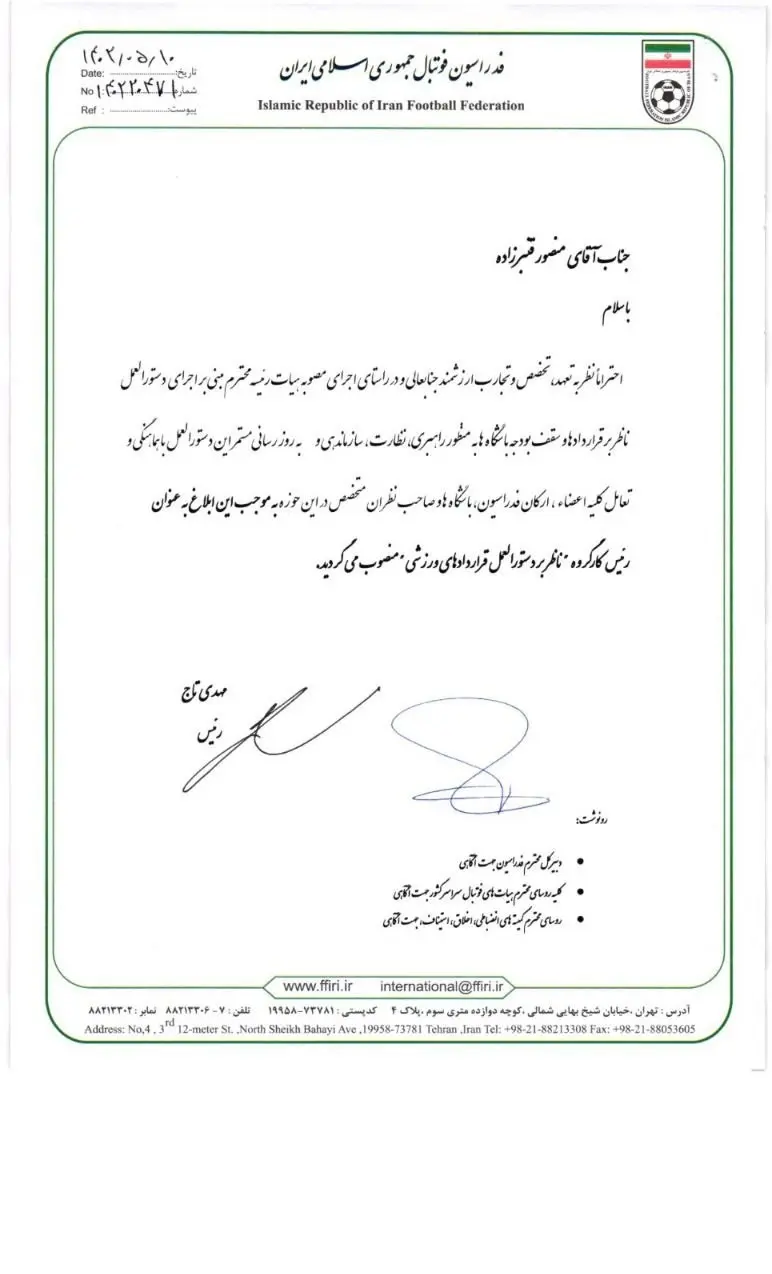 فدراسیون فوتبال جمهوری اسلامی ایران
Islamic Republic of Iran Football Federation
۱۴۰۲/۰۵/۱۰
Date: تاریخ:
No ۱۰۴۲۲۰۴۷۱ شماره
Ref : پیوست:
جناب آقای منصور قنبرزاده
باسلام
احتراماً نظر به تعهد، تخصص و تجارب ارزشمند جنابعالی و در راستای اجرای مصوبه هیات رئیسه محترم مبنی بر اجرای دستورالعمل
ناظر بر قراردادها و سقف بودجه باشگاه ها به منظور راهبری، نظارت، سازماندهی و به روز رسانی مستمر این دستورالعمل با هماهنگی و
تعامل کلیه اعضاء ، ارکان فدراسیون، باشگاه ها و صاحب نظران متخصص در این حوزه به موجب این ابلاغ به عنوان
رئیس کارگروه "ناظر بر دستورالعمل قراردادهای ورزشی" منصوب می گردید.
مهدی تاج
رئیس
رونوشت:
• دبیرکل محترم فدراسیون جهت آگاهی
• کلیه روسای محترم هیات های فوتبال سراسر کشور جهت آگاهی
• روسای محترم کمیته های انضباطی، اخلاق، استیناف، جهت آگاهی
www.ffiri.ir international@ffiri.ir
آدرس : تهران ،خیابان شیخ بهایی شمالی ،کوچه دوازده متری سوم ،پلاک ۴ کدپستی : ۷۳۷۸۱-۱۹۹۵۸ تلفن : ۷ - ۸۸۲۱۳۳۰۶ نمابر : ۸۸۲۱۳۳۰۲
Address: No,4 , 3rd 12-meter St. ,North Sheikh Bahayi Ave ,19958-73781 Tehran ,Iran Tel: +98-21-88213308 Fax: +98-21-88053605